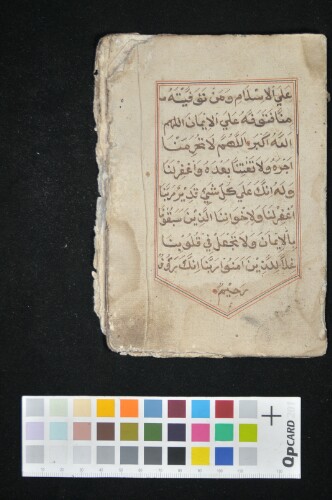 علي الاسلام ومن توفيته
منا فتوفه علي الايمان اللهم
الله اكبر اللهم لا تحرمنا
اجره ولا تفتنا بعده واغفر لنا
وله انك علي كل شيء قدير ربنا
اغفر لنا ولاخواننا الذين سبقونا
بالايمان ولا تجعل في قلوبنا
غلا للذين امنوا ربنا انك رؤف
رحيم
QPCARD